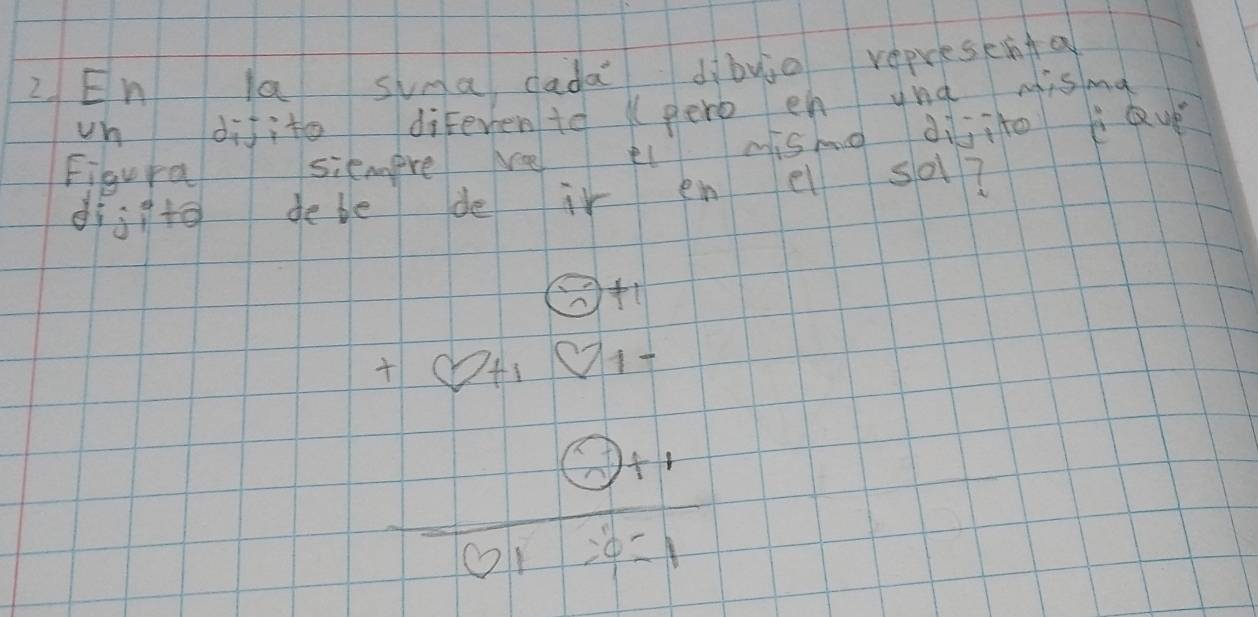 2. En la suma, cada dibujo representa
un dijito diferente (pero en una misma
Figura siempre va el mismo dijito ¿ Qué
dijito debe de ir en el sol?
☹ + 1
+ ♡ + 1 ♡ 1 -
☹ + 1
♡ 1 = 1